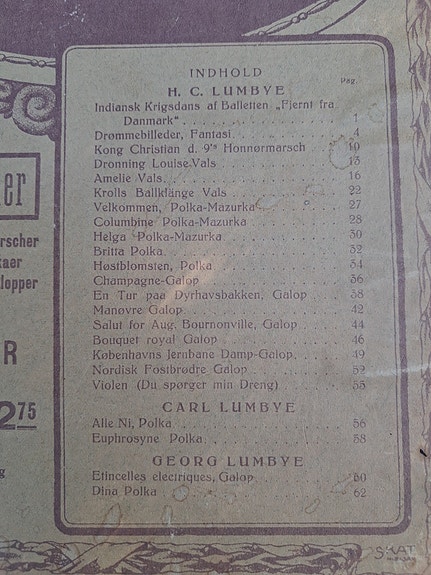 INDHOLD
Pag.
H. C. LUMBYE
Indiansk Krigsdans af Balletten „Fjernt fra
Danmark“ . . . . . . . . . . . . . . 1
Drømmebilleder, Fantasi. . . . . . . . . . 4
Kong Christian d. 9'ˢ Honnørmarsch . . . 10
Dronning Louise-Vals . . . . . . . . . . 13
Amelie Vals. . . . . . . . . . . . . . . 16
Krolls Ballklänge Vals . . . . . . . . . 22
Velkommen, Polka-Mazurka . . . . . . . . 27
Columbine Polka-Mazurka . . . . . . . . 28
Helga Polka-Mazurka . . . . . . . . . . 30
Britta Polka. . . . . . . . . . . . . . 32
Høstblomsten, Polka . . . . . . . . . . 34
Champagne-Galop . . . . . . . . . . . . 36
En Tur paa Dyrhavsbakken, Galop . . . . 38
Manøvre Galop . . . . . . . . . . . . . 42
Salut for Aug. Bournonville, Galop . . . 44
Bouquet royal Galop . . . . . . . . . . 46
Københavns Jernbane Damp-Galop. . . . . 49
Nordisk Fostbrødre Galop . . . . . . . . 52
Violen (Du spørger min Dreng) . . . . . 55
CARL LUMBYE
Alle Ni, Polka . . . . . . . . . . . . . 56
Euphrosyne Polka . . . . . . . . . . . . 58
GEORG LUMBYE
Etincelles electriques, Galop . . . . . 60
Dina Polka . . . . . . . . . . . . . . . 62
er
rscher
kaer
lopper
R
2 75
g